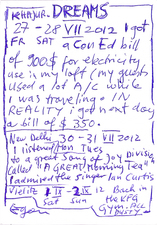 KHAJUR. DREAMS
27-28 VII 2012 I got
FR SAT a Con Ed bill
of 900$ for electricity
use in my loft (my guests
used a lot A/C while
I was traveling. IN
REALITY I got next day
a bill of $350.
New Delhi 30-31 VII 2012
I listened Mon Tues
to a great song of Joy Division
called "A GREAT Morning Tea"
I admired the singer Ian Curtis
Vielitz 1 IX - 2 IX 12 Back in
Sat Sun the KFG
GYMN